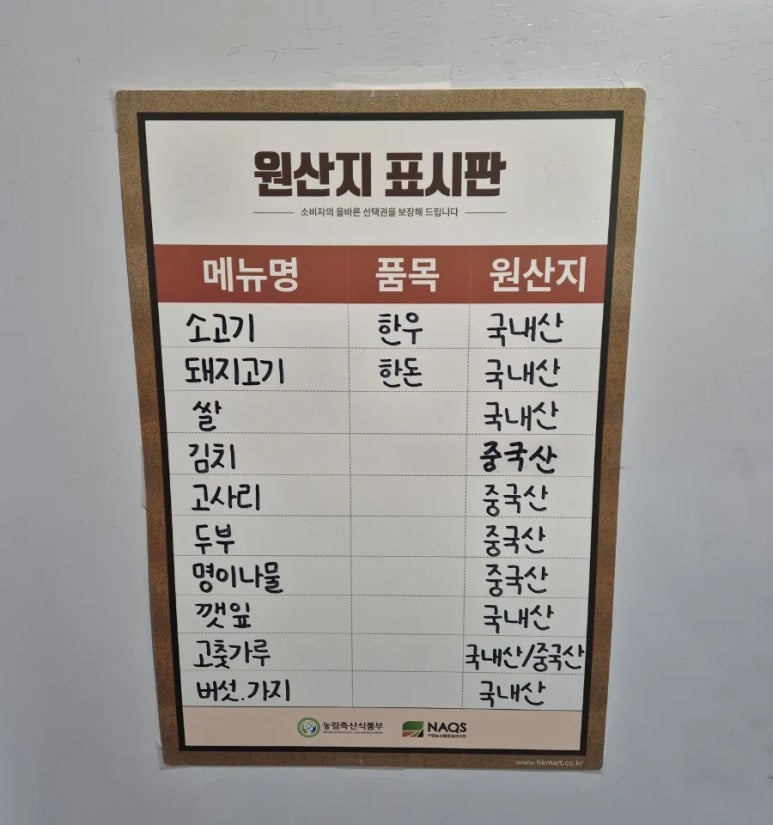 원산지 표시판
소비자의 올바른 선택권을 보장해 드립니다
메뉴명 품목 원산지
소고기 한우 국내산
돼지고기 한돈 국내산
쌀 국내산
김치 중국산
고사리 중국산
두부 중국산
명이나물 중국산
깻잎 국내산
고춧가루 국내산/중국산
버섯.가지 국내산
농림축산식품부 NAQS
www.hkmart.co.kr